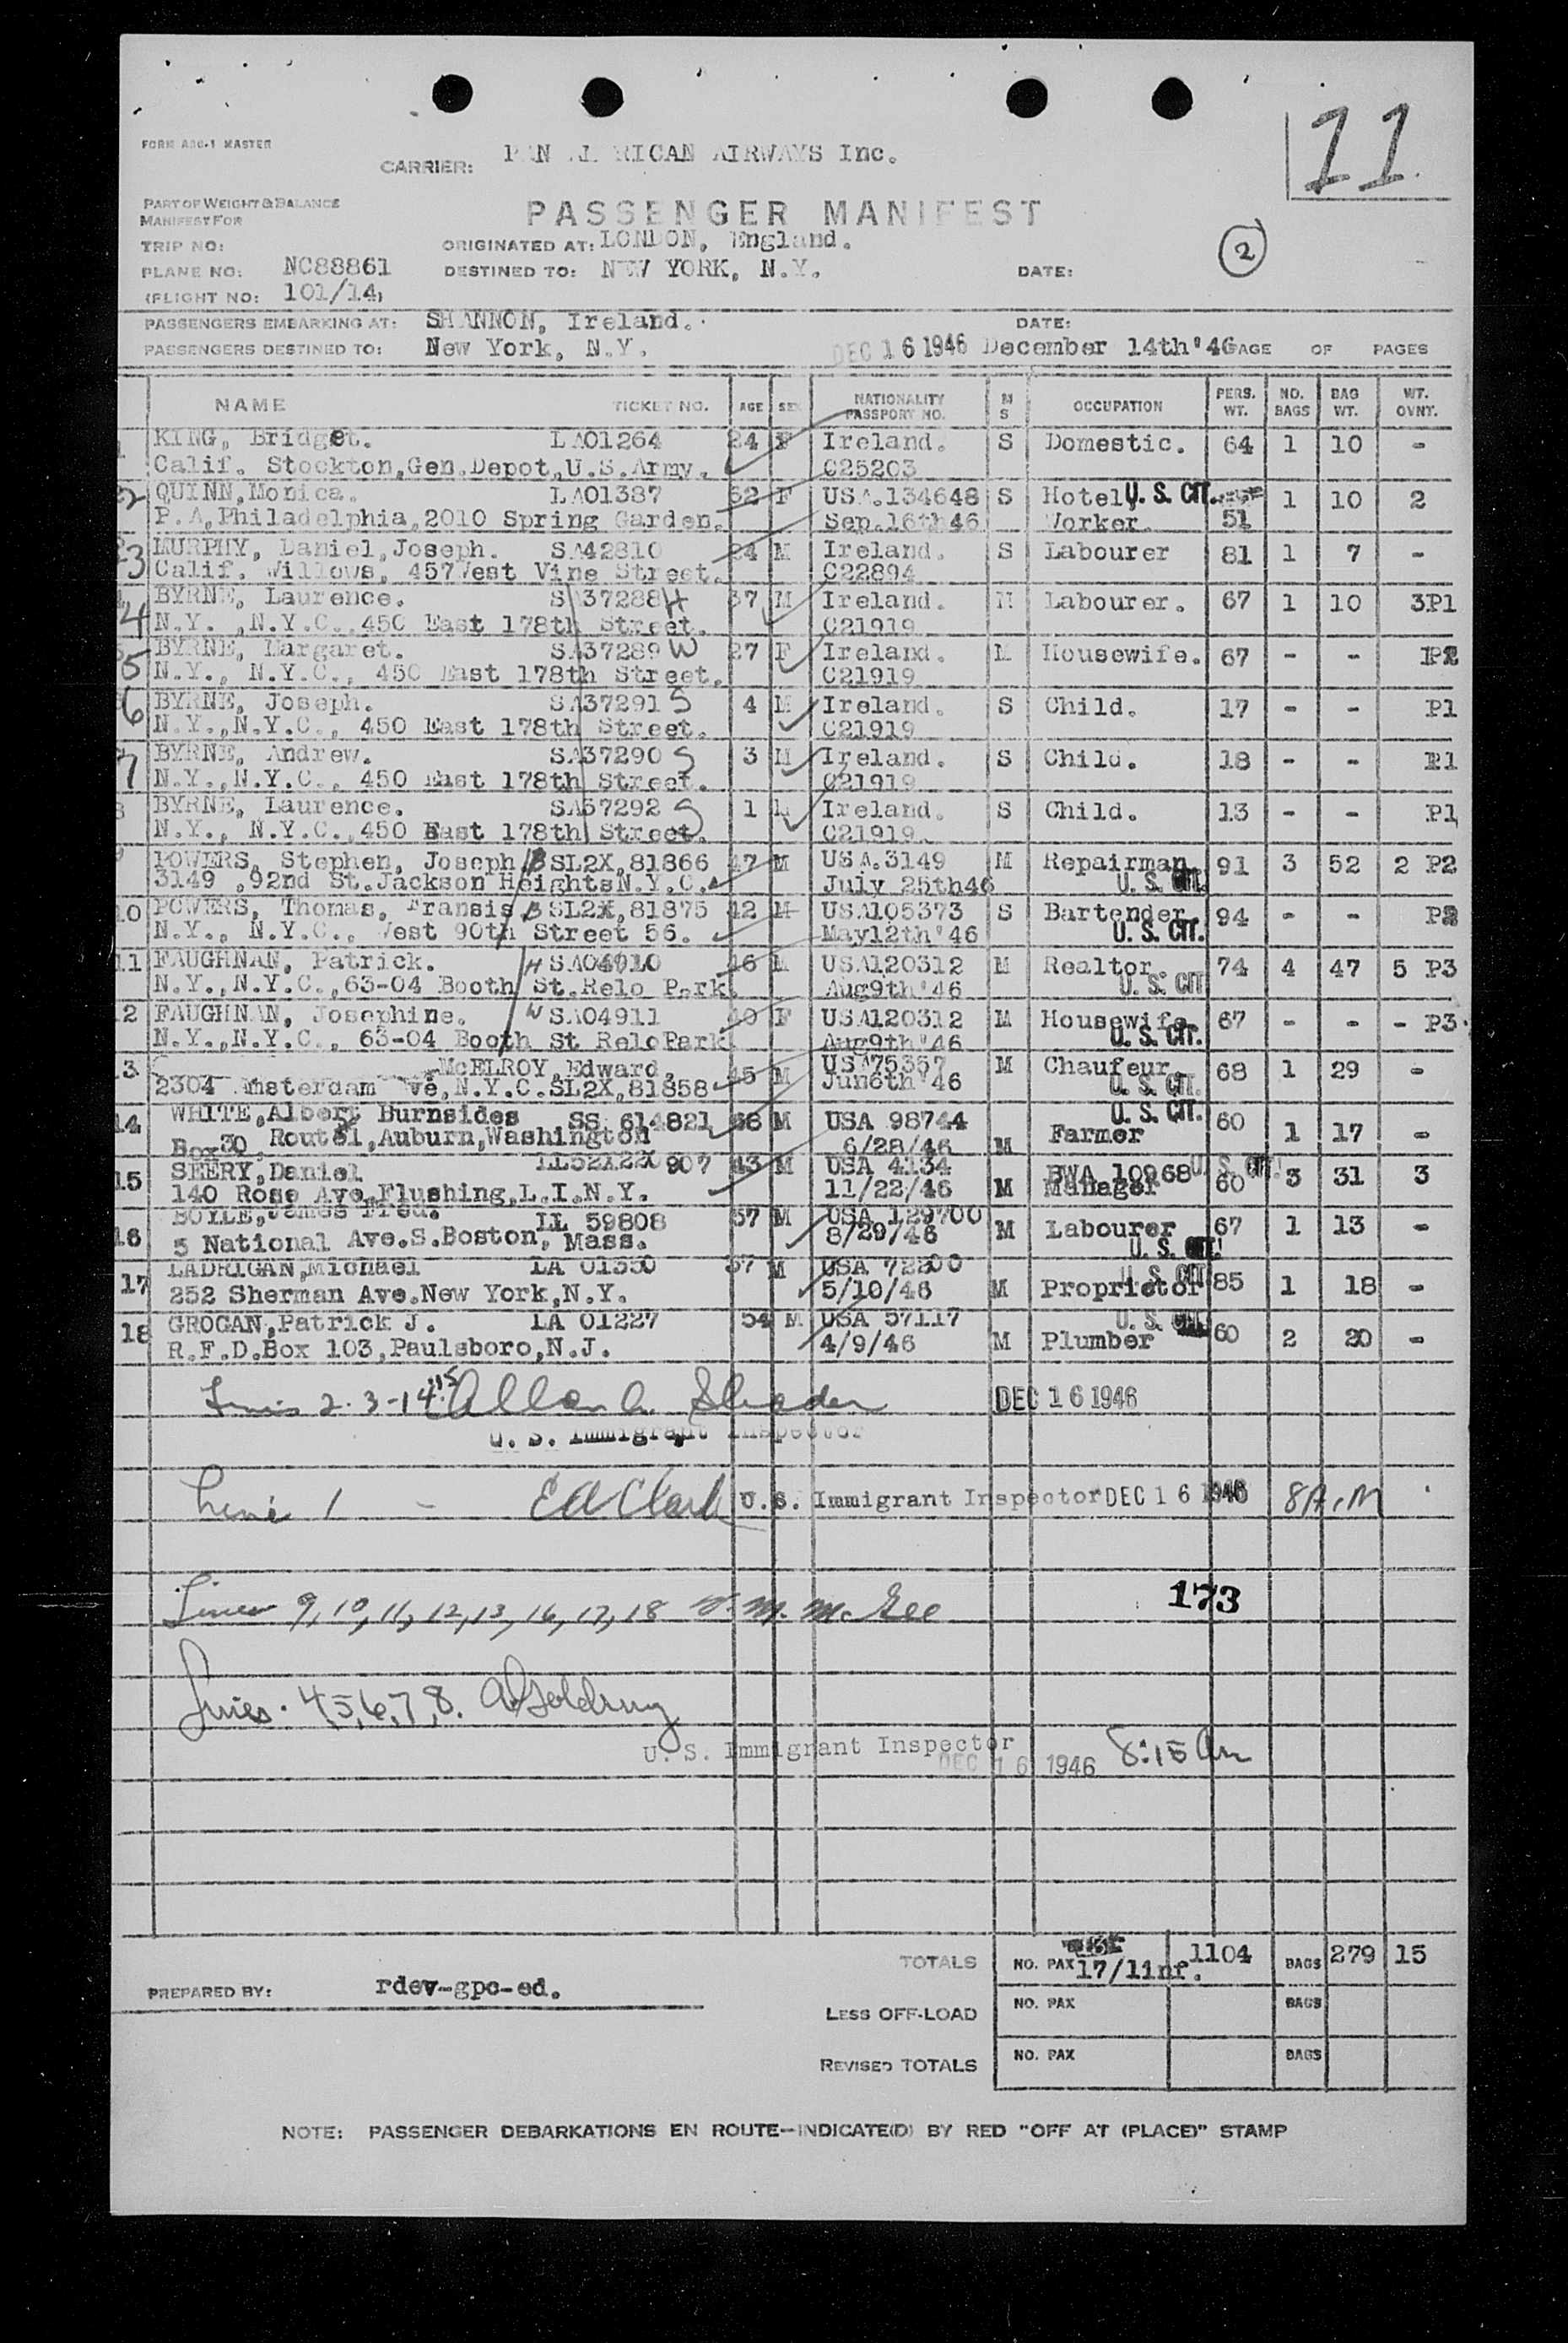 11
FORM MASTER
CARRIER: AIRWAYS Inc.
PART OF WEIGHT & BALANCE
MANIFEST FOR
PASSENGER MANIFEST
2
TRIP NO: ORIGINATED AT: LONDON, England.
PLANE NO: NC88861 DESTINED TO: NEW YORK, N.Y. DATE:
(FLIGHT NO: 101/14)
PASSENGERS EMBARKING AT: SHANNON, Ireland. DATE:
PASSENGERS DESTINED TO: New York, N.Y. DEC 16 1946 December 14th'46 PAGE OF PAGES
NAME TICKET NO. AGE SEX NATIONALITY PASSPORT NO. M S OCCUPATION PERS. WT. NO. BAGS BAG WT. WT. OVNT.
KING, Bridget. LA01264 24 F Ireland. S Domestic. 64 1 10 -
Calif. Stockton,Gen.Depot,U.S.Army. C25203
2 QUINN,Monica. LA01387 62 F USA.134648 S Hotel U. S. CIT. 1 10 2
P.A,Philadelphia,2010 Spring Garden. Sep.16th46 Worker. 51
3 MURPHY, Daniel,Joseph. SA42810 24 M Ireland. S Labourer 81 1 7 -
Calif. Willows, 457West Vine Street. C22894
4 BYRNE, Laurence. SA37288 H 37 M Ireland. M Labourer. 67 1 10 3P1
N.Y. ,N.Y.C.,450 East 178th Street. C21919
5 BYRNE, Margaret. SA37289 W 27 F Ireland. M Housewife. 67 - -
N.Y., N.Y.C., 450 East 178th Street. C21919
6 BYRNE, Joseph. SA37291 S 4 M Ireland. S Child. 17 - - P1
N.Y.,N.Y.C., 450 East 178th Street. C21919
7 BYRNE, Andrew. SA37290 S 3 M Ireland. S Child. 18 - - P1
N.Y.,N.Y.C., 450 East 178th Street. C21919
8 BYRNE, Laurence. SA37292 S 1 M Ireland. S Child. 13 - - P1
N.Y., N.Y.C.,450 East 178th Street. C21919
9 POWERS, Stephen, Joseph B SL2X,81866 47 M USA.3149 M Repairman 91 3 52 2 P2
3149 ,92nd St.Jackson Heights N.Y.C. July 25th46 U. S. CIT.
10 POWERS, Thomas, Fransis B SL2X,81875 42 M USA105373 S Bartender. 94 - -
N.Y., N.Y.C., West 90th Street 56. May12th'46 U. S. CIT.
11 FAUGHNAN, Patrick. H SA04910 46 M USA120312 M Realtor 74 4 47 5 P3
N.Y.,N.Y.C.,63-04 Booth St.Relo Park. Aug9th'46 U. S. CIT
12 FAUGHNAN, Josephine. W SA04911 40 F USA120312 M Housewife 67 - - - P3.
N.Y.,N.Y.C., 63-04 Booth St ReloPark Aug9th'46 U. S. CIT.
13 McELROY,Edward, 45 M USA75357 M Chaufeur. 68 1 29 -
2304 Amsterdam Ave,N.Y.C.SL2X,81858 Jun6th'46 U. S. CIT.
14 WHITE,Albert Burnsides SS 614821 68 M USA 98744 U. S. CIT. 60
Box30, Route1,Auburn,Washington 6/28/46 M Farmer 1 17 -
15 SEERY,Daniel 907 43 M USA 4134 BWA 10968 U. S. CIT. 3 31 3
140 Rose Ave,Flushing,L.I.N.Y. 11/22/46 M Manager 60
16 BOYLE,James Fred. LL 59808 57 M USA 129700 M Labourer 67 1 13 -
5 National Ave.S.Boston, Mass. 8/29/46 U. S. CIT.
17 LADRIGAN,Michael LA 01350 37 M U. S. CIT
252 Sherman Ave.New York,N.Y. 5/10/46 M Proprietor 85 1 18 -
18 GROGAN,Patrick J. LA 01227 54 M USA 57117 U. S. CIT.
R.F.D.Box 103,Paulsboro,N.J. 4/9/46 M Plumber 60 2 20 -
2-3-14-15 Allan DEC 16 1946
U. S. Immigrant Inspector
Line 1 - Ed Clark U.S. Immigrant Inspector DEC 16 1946 8 A.M
173
Lines 9, 10, 11, 12, 13, 16, 17, 18 McGee
Lines. 4,5,6,7,8.
U. S. Immigrant Inspector
DEC 16 1946 8:15 am
TOTALS NO. PAX 17/1inf. 1104 BAGS 279 15
PREPARED BY: rdev-gpc-ed.
LESS OFF-LOAD NO. PAX BAGS
REVISED TOTALS NO. PAX BAGS
NOTE: PASSENGER DEBARKATIONS EN ROUTE—INDICATE(D) BY RED "OFF AT (PLACE)" STAMP